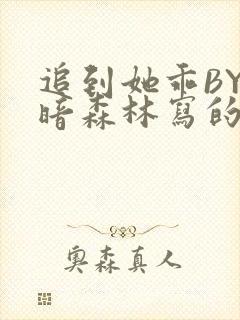 追到她乖BY
暗森林写的
奥森真人